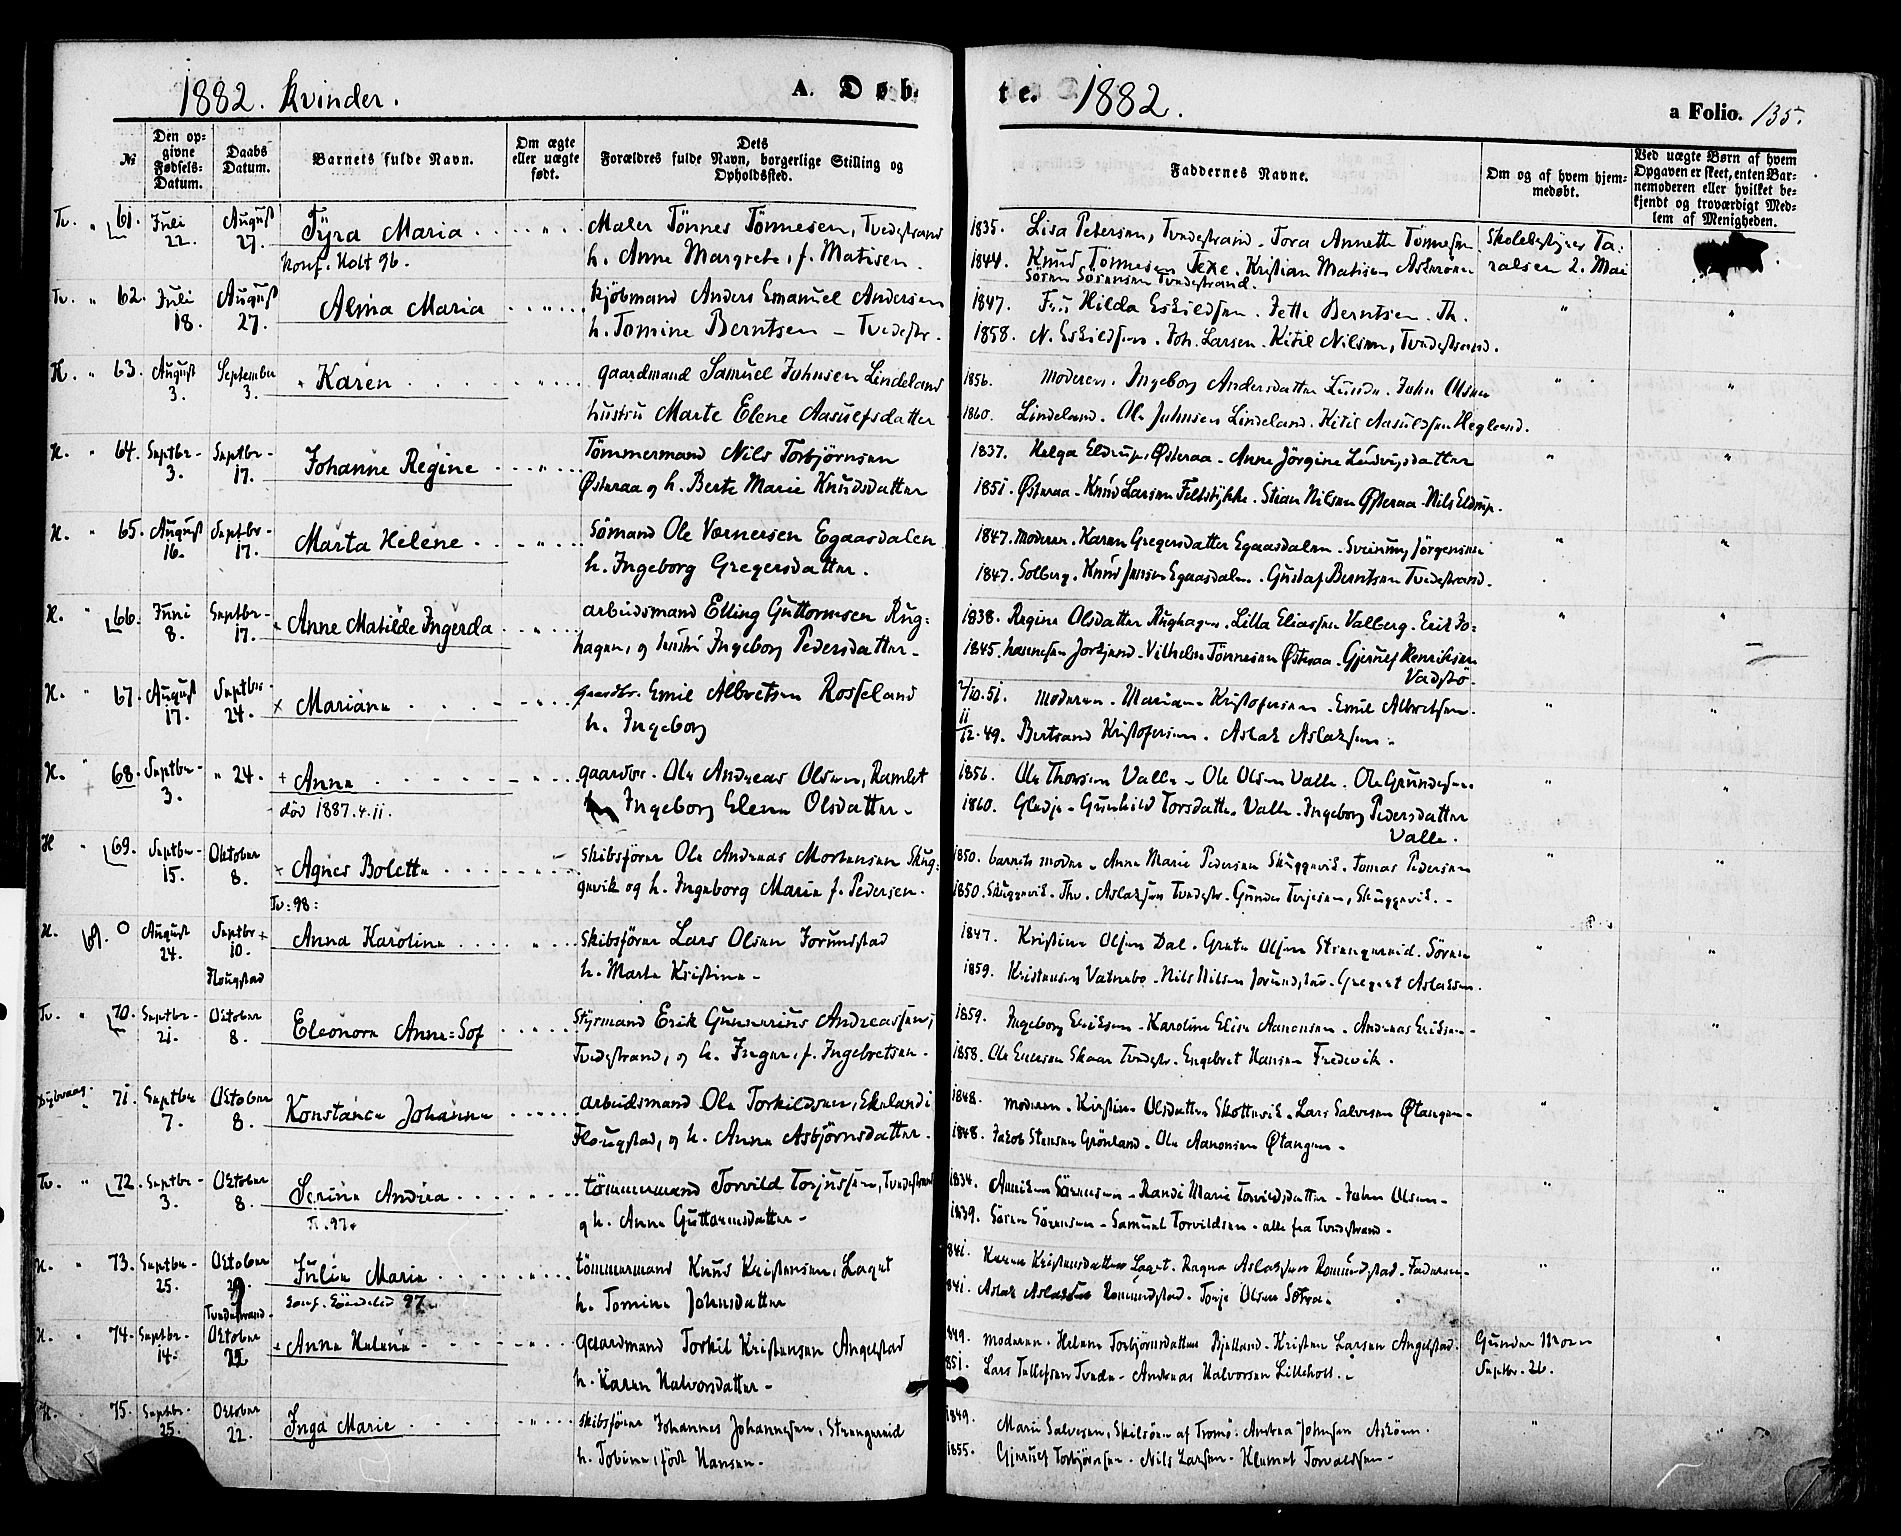 1882. Kvinder.
A. Døb-
te.
1882.
a Folio. 135.
№
Den opgivne Fødsels-Datum.
Daabs Datum.
Barnets fulde Navn.
Om ægte eller uægte født.
Dets Forældres fulde Navn, borgerlige Stilling og Opholdssted.
Faddernes Navne.
Om og af hvem hjemmedøbt.
Ved uægte Børn af hvem Opgaven er skeet, enten Barnemoderen eller hvilket bekjendt og troværdigt Medlem af Menigheden.
Tv. " 61. Juli 22. August 27. Tyra Maria " Maler Tönnes Tönnesen, Tvedestrand 1835. Lisa Petersen, Tvedestrand. Tora Annette Tönnesen Skolebestyrer Ta-
Konf. Holt 96. h. Anne Margrete, f. Matisen. 1844. Knud Tönnesen Texe. Kristian Matisen Askerøen ralsen 2. Mai
Sören Sörensen Tvedestrand.
Tv. " 62. Juli 18. August 27. Alma Maria " Kjöbmand Anders Emanuel Andersen 1847. Fru Hilda Eskildsen. Jette Berntsen. Th. " "
h. Tomine Berntsen - Tvedestr. 1858. N. Eskildsen. Joh. Larsen. Kitil Nilsen, Tvedestrand.
H. " 63. August 3. September 3. Karen " gaardmand Samuel Johnsen Lindeland 1856. Moderen. Ingeborg Andersdatter Lunde. John Olsen " "
hustru Marte Elene Aasulfsdatter 1860. Lindeland. Ole Johnsen Lindeland. Kitil Aasuldsen Hegland.
H. " 64. Septbr. 3. Septbr. 17. Johanne Regine " Tömmermand Nils Torbjörnsen 1837. Helga Eldrup, Østeraa. Anne Jörgine Ludvigsdatter " "
Østeraa og h. Berte Marie Knudsdatter 1851. Østeraa. Knud Larsen Feltstykke. Stian Nilsen Østeraa. Nils Eldrup.
H. " 65. August 16. Septbr. 17. Marta Helene " Sömand Ole Vernersen Egaasdalen 1847. Moderen. Karen Gregersdatter Egaasdalen. Sveinung Jörgensen " "
h. Ingeborg Gregersdatter. 1847. Solberg. Knud Jensen Egaasdalen. Gustaf Berntsen Tvedestrand.
H. " 66. Juni 8. Septbr. 17. Anne Matilde Ingerda " arbeidsmand Elling Guttormsen Rug- 1838. Regine Olsdatter Rughagen. Lilla Eliassen Valberg. Erik Jo- " "
hagen, og hustru Ingeborg Pedersdatter. 1845. hannesen Jorkjend. Vilhelm Tönnesen Østeraa. Gjerulf Henriksen
Vadstö.
H. " 67. August 17. Septbr. 24. x Mariane " gaardbr. Emil Albretsen Rosseland 2/10.51. Moderen. Mariane Kristofersen. Emil Albretsen. " "
h. Ingeborg 11/12.49. Bertrand Kristofersen. Aslak Aslaksen.
H. " 68. Septbr. 3. " 24. + Anne " gaardbr. Ole Andreas Olsen, Ramlet 1856. Ole Thorsen Valle. Ole Olsen Valle. Ole Gundersen " "
död 1887.4.11. h. Ingeborg Elene Olsdatter. 1860. Gledje. Gunhild Torsdatter Valle. Ingeborg Pedersdatter
Valle.
H " 69. Septbr. 15. Oktober 8. x Agnes Bolette " Skibsförer Ole Andreas Mortensen Skug- 1850. barnets moder. Anne Marie Pedersen Skuggevik. Tomas Pedersen " "
Tv: 98: gevik og h. Ingeborg Marie f. Pedersen. 1850. Skuggevik. Thv. Aslaksen Tvedestr. Gunder Terjesen, Skuggevik.
H. 69. O August 24. Septbr + 10. Flougstad Anna Karoline " Skibsförer Lars Olsen Jorundstad 1847. Kristine Olsen Dal. Grete Olsen Strengereid. Sören " "
h. Marte Kristine 1859. Kristensen Vatnebo. Nils Nilsen Jorundstad. Gregert Aslaksen.
Tv. " 70. Septbr. 21. Oktober 8. Eleonora Anne-Sof " Styrmand Erik Gunerius Andreassen, 1859. Ingeborg Eriksen. Karoline Elise Aanonsen. Andreas Eriksen " "
Tvedestrand, og h. Inger, f. Ingebretsen. 1858. Ole Ericsen Skaar Tvedestr. Engebret Hansen Fredevik.
Dybvaag. " 71. Septbr 7. Oktober 8. Konstance Johanne " arbeidsmand Ole Torkildsen, Ekeland i 1848. Moderen. Kirstine Olsdatter Skottevik. Lars Salvesen Øtangen. " "
Flougstad, og h. Anne Asbjörnsdatter. 1848. Jakob Stensen Grönland. Ole Aanonsen Øtangen.
Tv. " 72. Septbr. 3. Oktober 8. Serine Andrea " tömmermand Torvild Torjussen, Tvedestrand 1834. Annichen Sörensen. Randi Marie Torvildsdatter. John Olsen. " "
T. 97. og h. Anne Guttormsdatter. 1839. Sören Sörensen. Samuel Torvildsen. alle fra Tvedestrand.
H. " 73. Septbr. 25. Oktober 29. Tvedestrand. Julie Marie " tömmermand Knud Kristensen, Laget 1841. Karen Kristensdatter Laget. Ragna Aslaksen Romundstad. Faderen. " "
Konf. Söndeled 97. h. Tomine Johnsdatter 1841. Aslak Aslaksen Romundstad. Tonje Olsen Sotra.
H. " 74. Septbr. 14. Oktober 22. Anne Helene " Gaardmand Torkil Kristensen Angelstad 1849. Moderen. Helene Torbjörnsdatter Bjelland. Kristen Larsen Angelstad. Gunder Moen "
h. Karen Halvorsdatter. 1851. Lars Tellefsen Tvede. Andreas Halvorsen Lilleholt. Septbr. 26.
H. " 75. Septbr. 25. Oktober 22. Inga Marie " skibsförer Johannes Johannessen, Strengereid 1849. Marie Salvesen, Skilsöen af Tromö. Andrea Johnsen Asköen. " "
h. Tobine, födt Hansen. 1855. Gjerulf Torbjörnsen. Nils Larsen. Klemet Torvaldsen.